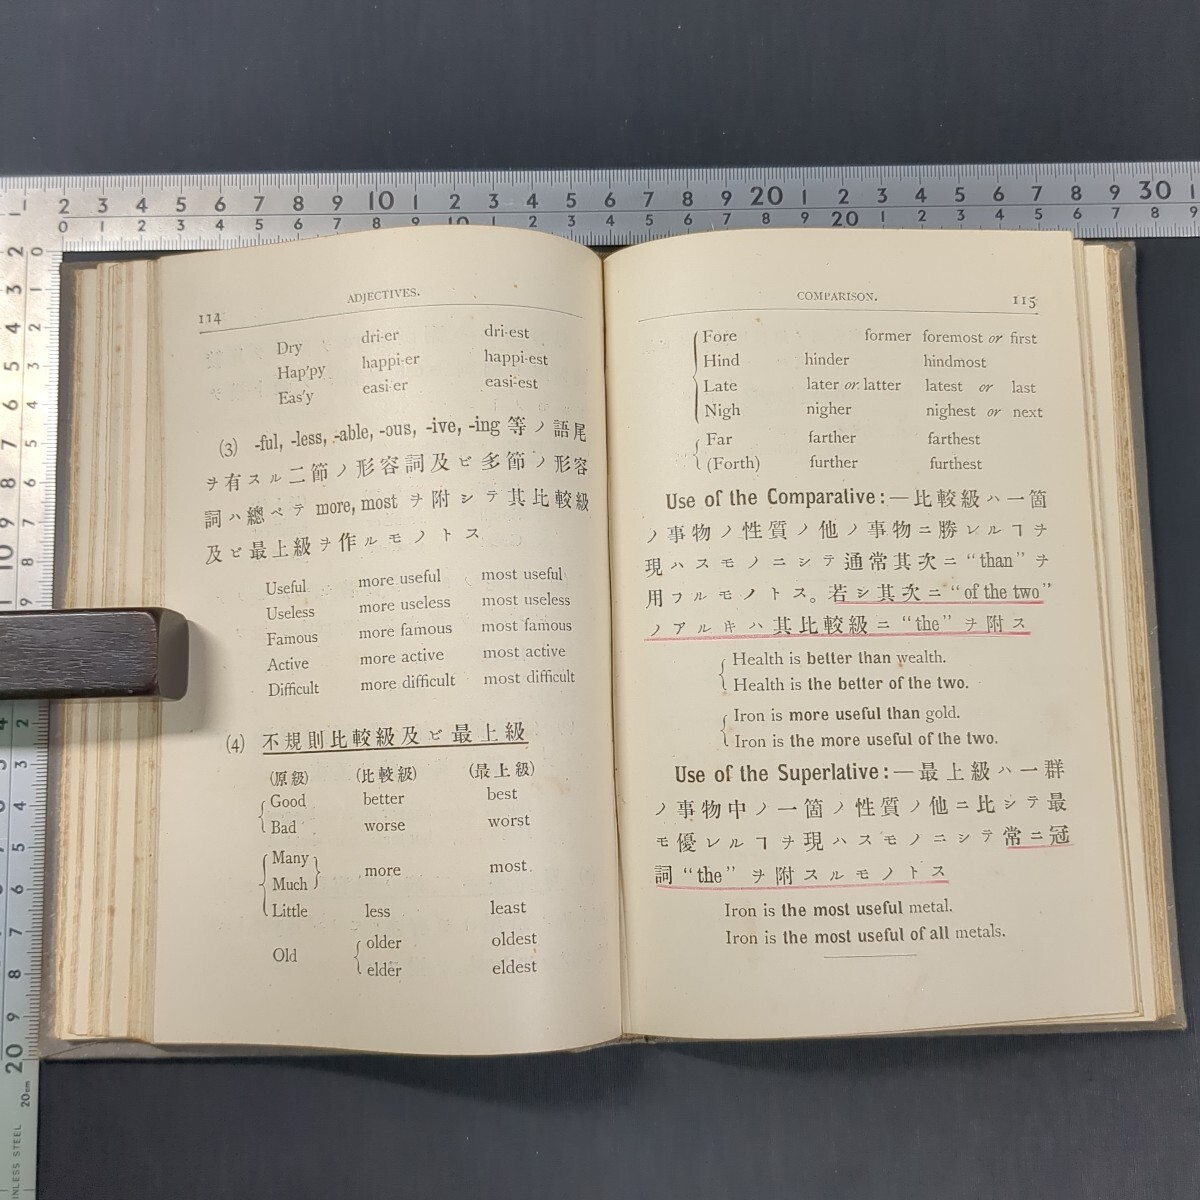 114
ADJECTIVES.
Dry dri-er dri-est
Hap'py happi-er happi-est
Eas'y easi-er easi-est
(3) -ful, -less, -able, -ous, -ive, -ing 等ノ語尾
ヲ有スル二節ノ形容詞及ビ多節ノ形容
詞ハ總ベテ more, most ヲ附シテ其比較級
及ビ最上級ヲ作ルモノトス
Useful more useful most useful
Useless more useless most useless
Famous more famous most famous
Active more active most active
Difficult more difficult most difficult
(4) 不規則比較級及ビ最上級
(原級) (比較級) (最上級)
Good better best
Bad worse worst
Many
Much more most
Little less least
Old older oldest
elder eldest
COMPARISON.
115
Fore former foremost or first
Hind hinder hindmost
Late later or latter latest or last
Nigh nigher nighest or next
Far farther farthest
(Forth) further furthest
Use of the Comparative:—比較級ハ一箇
ノ事物ノ性質ノ他ノ事物ニ勝レルヿヲ
現ハスモノニシテ通常其次ニ “than” ヲ
用フルモノトス。若シ其次ニ “of the two”
ノアルキハ其比較級ニ “the” ヲ附ス
Health is better than wealth.
Health is the better of the two.
Iron is more useful than gold.
Iron is the more useful of the two.
Use of the Superlative:—最上級ハ一群
ノ事物中ノ一箇ノ性質ノ他ニ比シテ最
モ優レルヿヲ現ハスモノニシテ常ニ冠
詞 “the” ヲ附スルモノトス
Iron is the most useful metal.
Iron is the most useful of all metals.